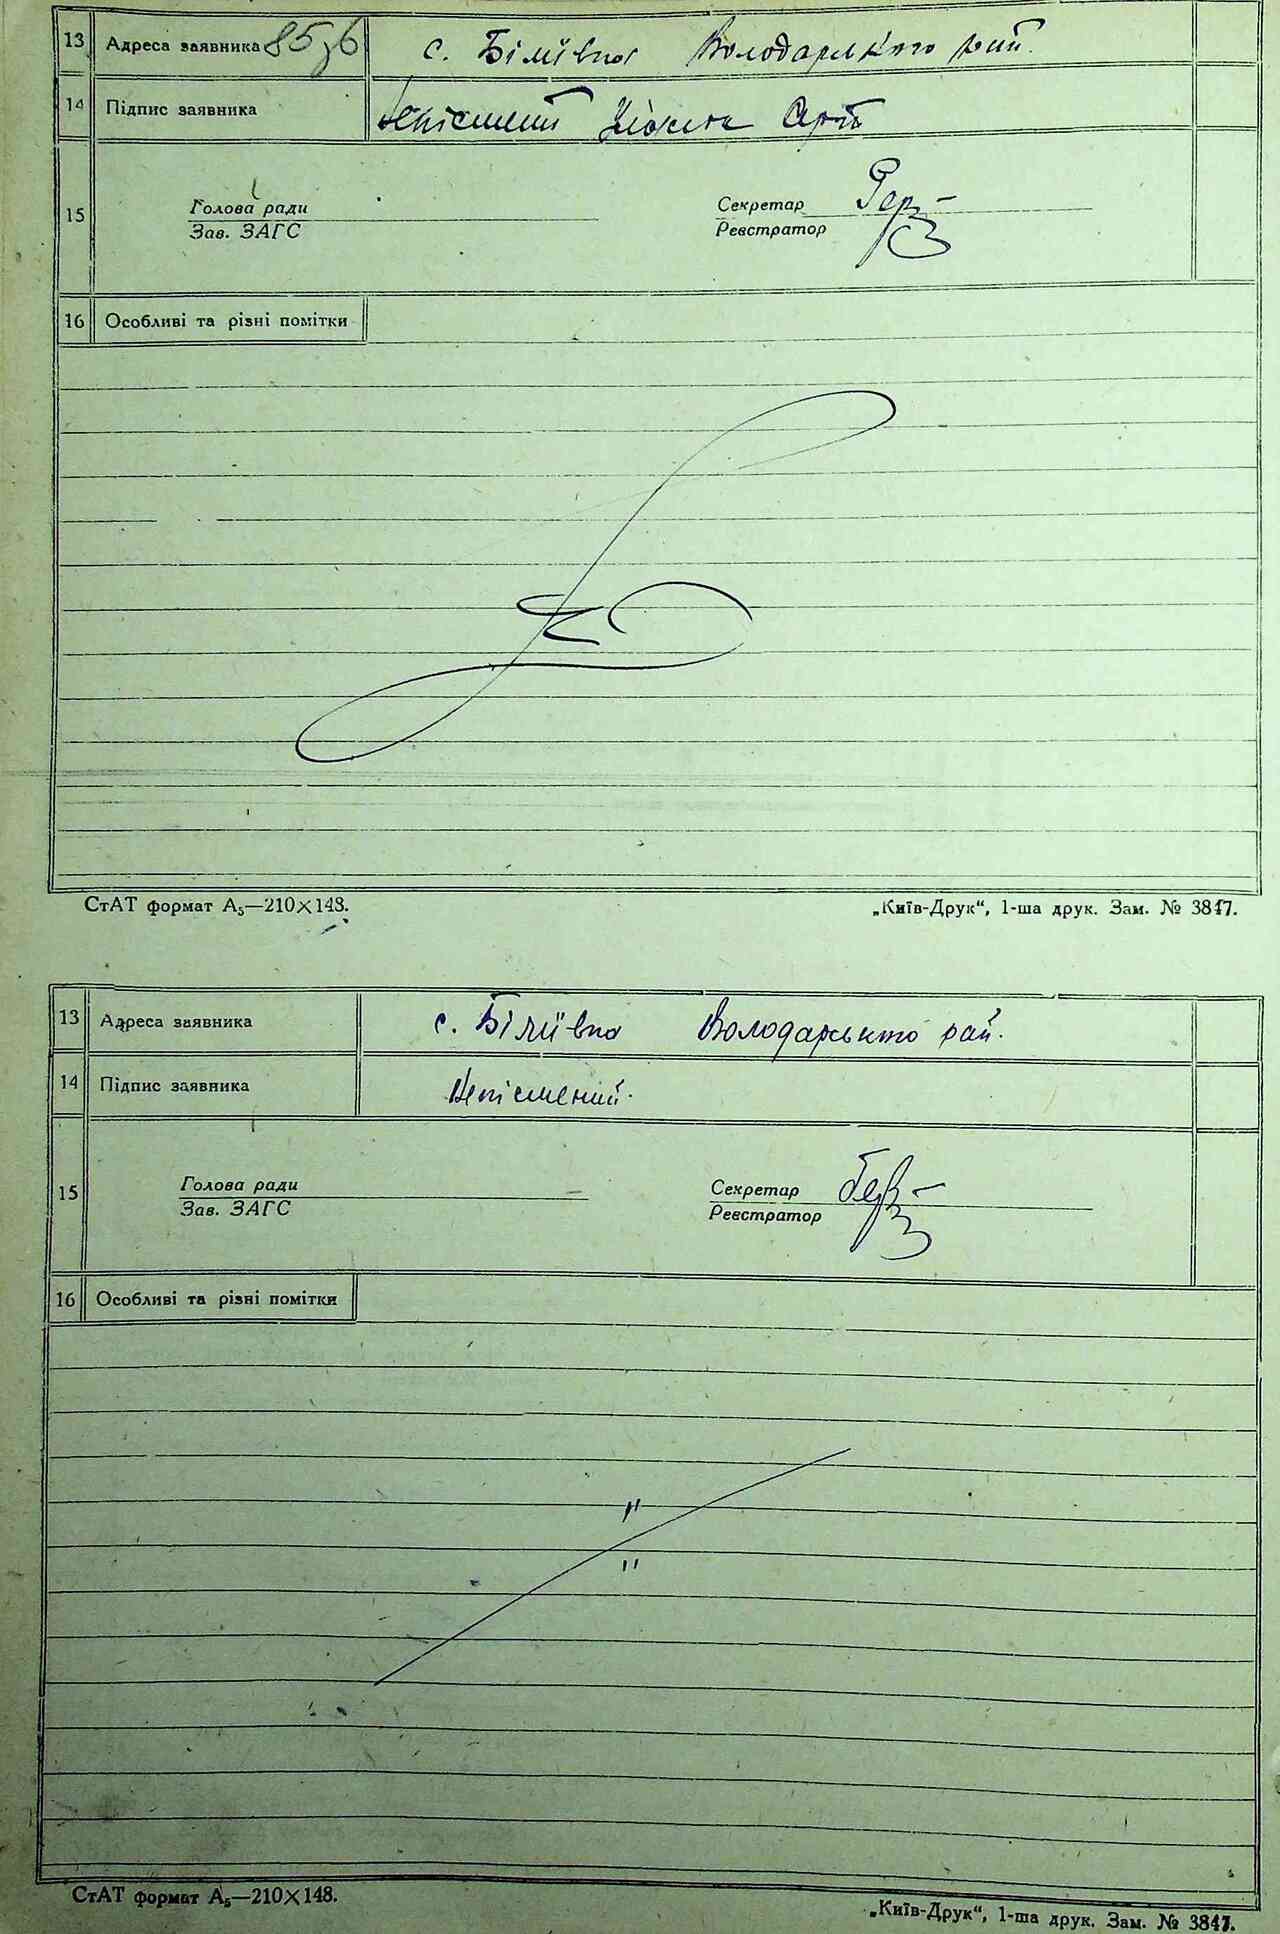 13 Адреса заявника 85зв с. Біліївка Володарського рай.
14 Підпис заявника Непісмений
15 Голова ради Секретар
Зав. ЗАГС Реєстратор
16 Особливі та різні помітки
СтАТ формат А5—210×148. „Київ-Друк“, 1-ша друк. Зам. № 3847.
13 Адреса заявника с. Біліївка Володарського рай.
14 Підпис заявника Непісмений.
15 Голова ради Секретар
Зав. ЗАГС Реєстратор
16 Особливі та різні помітки
"
"
СтАТ формат А5—210×148. „Київ-Друк“, 1-ша друк. Зам. № 3847.